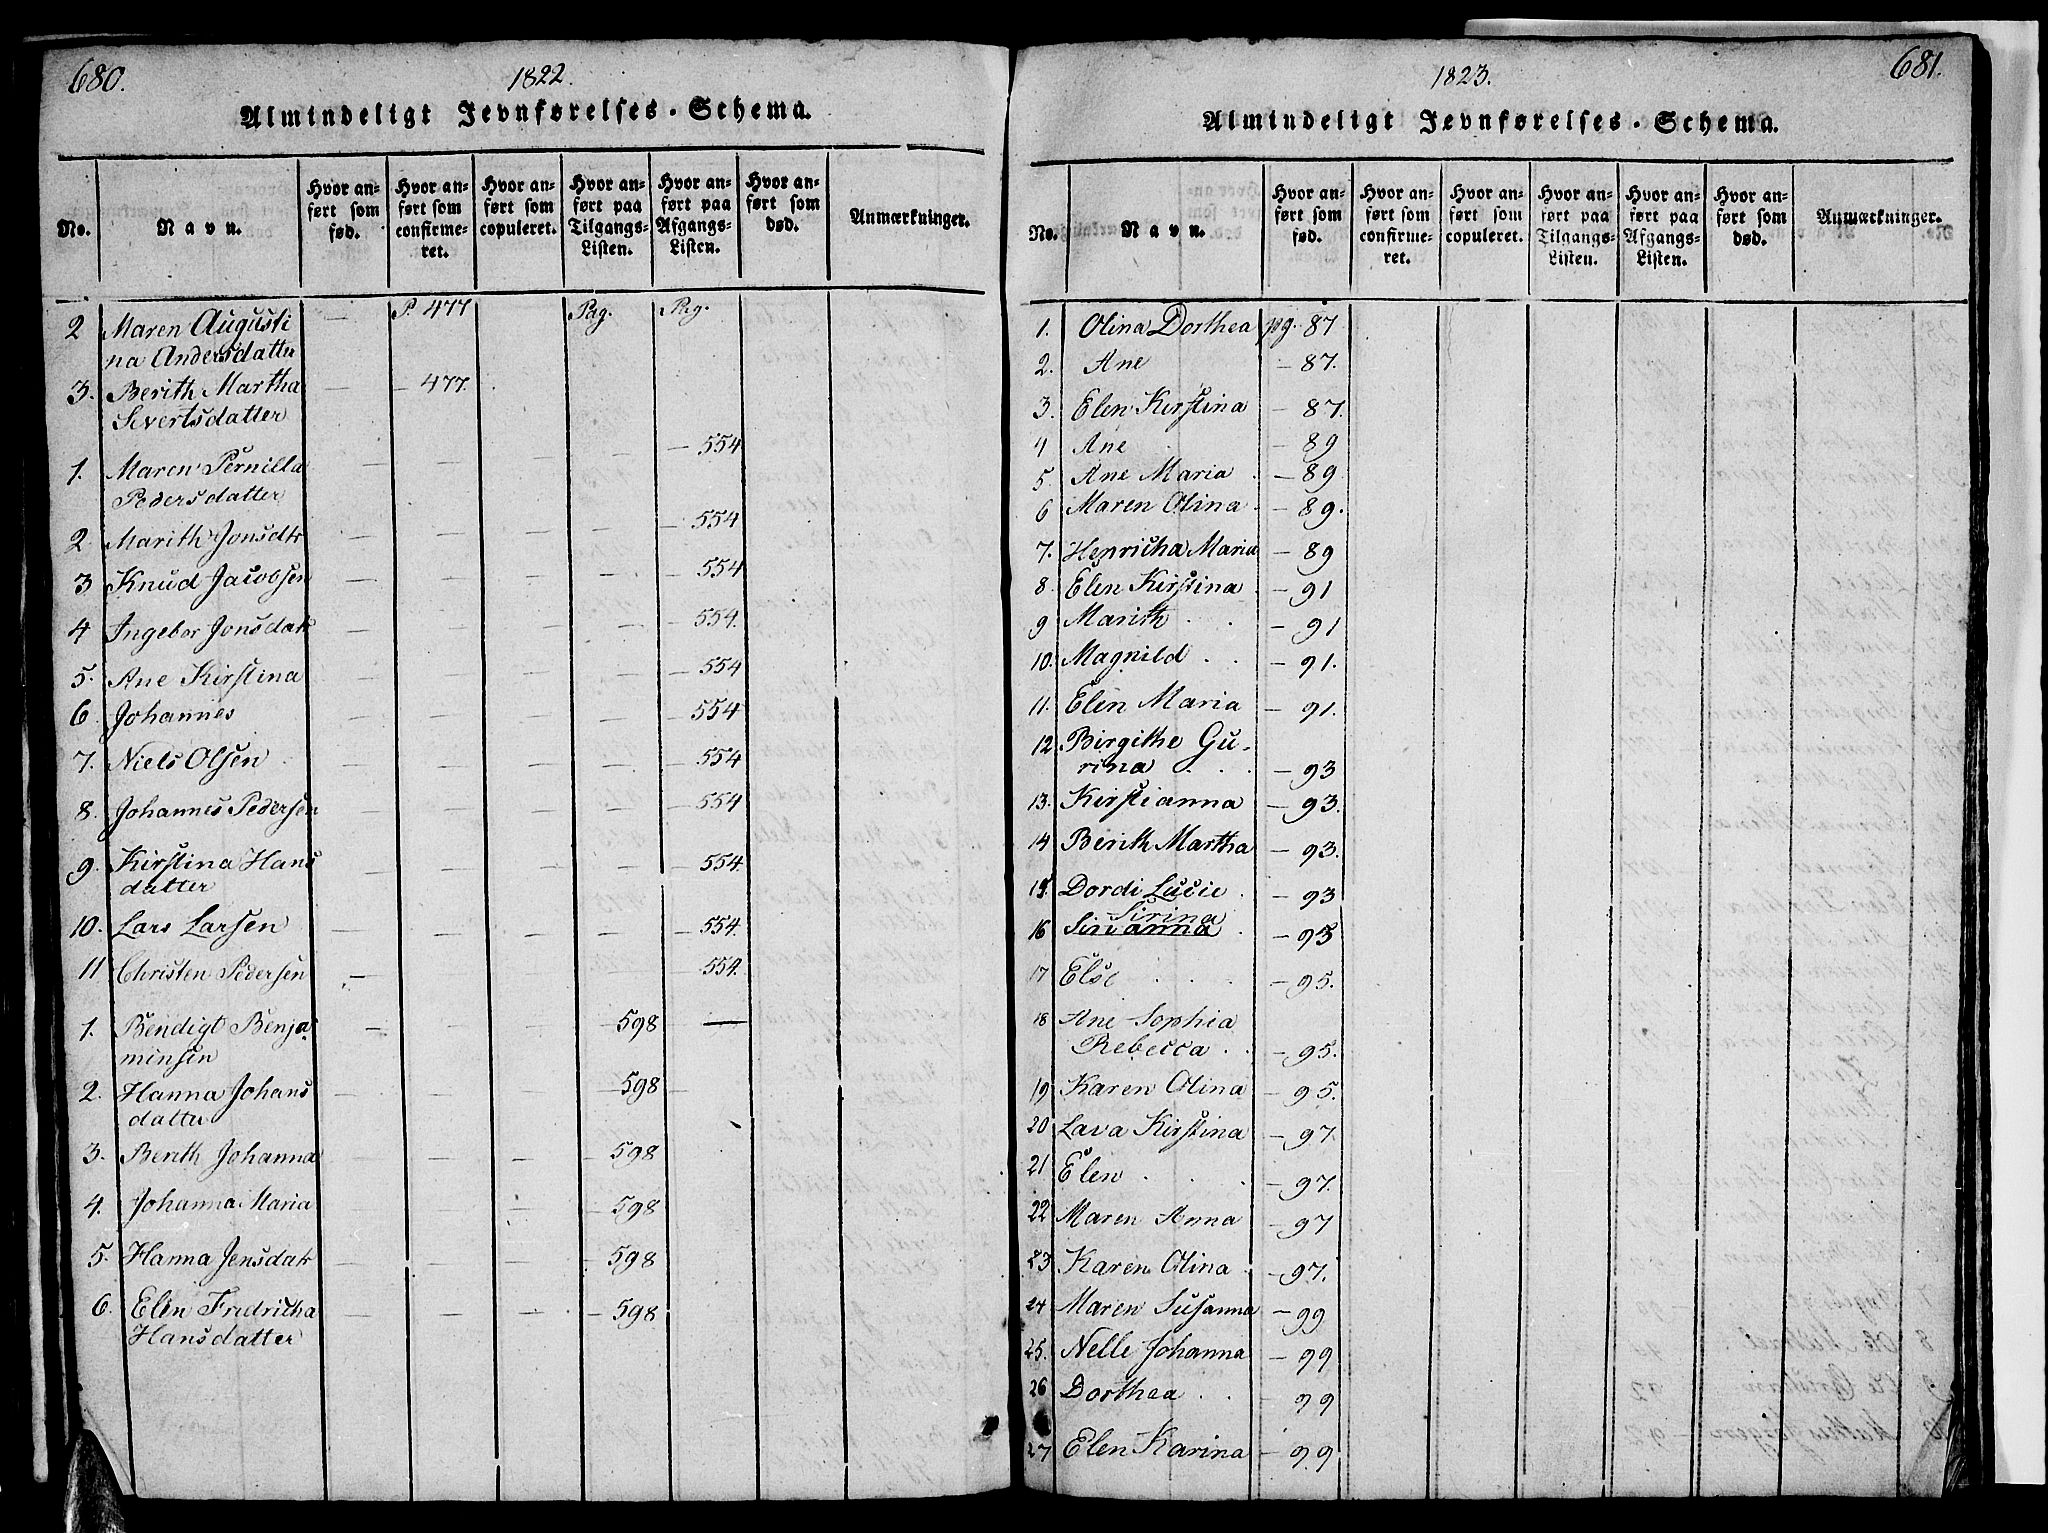 680.
1822.
Almindeligt Jevnførelses-Schema.
No.
Navn.
Hvor an-
ført som
fød.
Hvor an-
ført som
confirme-
ret.
Hvor an-
ført som
copuleret.
Hvor an-
ført paa
Tilgangs-
Listen.
Hvor an-
ført paa
Afgangs-
Listen.
Hvor an-
ført som
død.
Anmærkninger.
2 Maren Augusti — P. 477 Pag. Pag.
na Andersdatter
3. Berith Martha — — 477.
Sivertsdatter
1. Maren Pernilla — — — — — 554
Pedersdatter
2. Marith Jonsdtr — — — — — 554
3 Knud Jacobsen — — — — — 554
4 Ingebor Jonsdatr — — — — — 554.
5. Ane Kirstina — — — — — 554
6. Johannes — — — — — 554
7. Niels Olsen — — — — — 554
8. Johannes Pedersen — — — — — 554
9. Kirstina Hans — — — — — 554.
datter
10. Lars Larsen — — — — — 554.
11 Christen Pedersen — — — — — 554.
1. Bendigt Benja — — — — 598 —
minsen
2. Hanna Johans — — — — 598 —
datter
3. Berith Johanna — — — — 598
4. Johanna Maria — — — — 598
5. Hanna Jensdatr — — — — 598
6. Elen Fredricha — — — — 598
Hansdatter
681.
1823.
Almindeligt Jevnførelses-Schema.
No.
Navn.
Hvor an-
ført som
fød.
Hvor an-
ført som
confirme-
ret.
Hvor an-
ført som
copuleret.
Hvor an-
ført paa
Tilgangs-
Listen.
Hvor an-
ført paa
Afgangs-
Listen.
Hvor an-
ført som
død.
Anmærkninger.
1. Olina Dorthea pg. 87
2. Ane — 87.
3. Elen Kirstina — 87.
4 Ane — 89
5 Ane Maria — 89.
6 Maren Olina — 89.
7. Henricha Maria — 89
8. Elen Kirstina — 91
9 Marith — 91
10. Magnild — 91.
11. Elen Maria — 91.
12 Birgithe Gu-
rina — 93
13. Kirstianna — 93.
14 Berith Martha — 93.
15. Dordi Lucie — 93
Sirina
16 Sirianna — 93
17 Else — 95.
18 Ane Sophia
Rebecca — 95.
19 Karen Olina — 95.
20 Lava Kirstina — 97.
21 Elen — 97.
22 Maren Anna — 97
23 Karen Olina — 97.
24 Maren Susanna — 99
25. Nelle Johanna — 99
26 Dorthea — 99
27 Elen Karina — 99